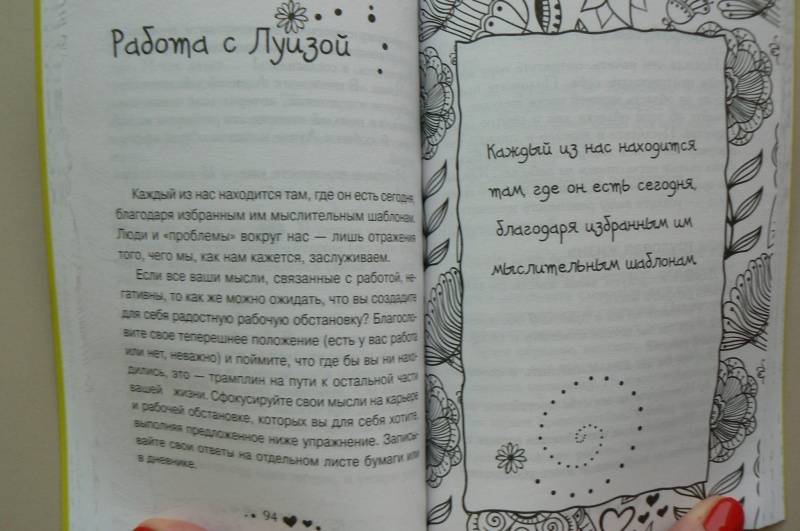 Работа с Луизой
Каждый из нас находится там, где он есть сегодня,
благодаря избранным им мыслительным шаблонам.
Люди и «проблемы» вокруг нас — лишь отражения
того, чего мы, как нам кажется, заслуживаем.
Если все ваши мысли, связанные с работой, не-
гативны, то как же можно ожидать, что вы создадите
для себя радостную рабочую обстановку? Благосло-
вите свое теперешнее положение (есть у вас работа
или нет, неважно) и поймите, что где бы вы ни нахо-
дились, это — трамплин на пути к остальной части
вашей жизни. Сфокусируйте свои мысли на карьере
и рабочей обстановке, которых вы для себя хотите,
выполняя предложенное ниже упражнение. Записы-
вайте свои ответы на отдельном листе бумаги или
в дневнике.
94
Каждый из нас находится
там, где он есть сегодня,
благодаря избранным им
мыслительным шаблонам.